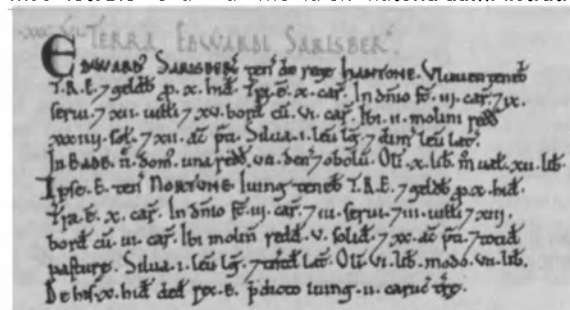 TERRA EDWARDI SARISBER'.
EDWARD' SARISBER' ten' de rege HANTONE. Vluuen teneb'
T.R.E. 7 geldb' p. x. hid'. Tra .e. x. car'. In dnio st .iij. car'. 7 ix.
serui. 7 xii. uilli 7 xv. bord cu . vi. car'. Ibi .ii. molini redd'
sol'. 7 xii. ac pti. Silua .i. leu lg'. 7 dim' leu lat'.
In BADE .ii. dom'. una redd' . vii. den' 7 obolu. Oli .x. lib. m ual't .xii. lib.
Ipse .E. ten' NORTUNE. Iuing teneb' T.R.E. 7 geldb' .p. x. hid'.
Tra .e. x. car'. In dnio st .iij. car'. 7 iii. serui. 7 iii. uilli 7 xiij.
bord cu . iii. car'. Ibi molin' redd' . v. solid'. 7 xx. ac pti. 7
pasturę. Silua .i. leu lg'. 7 lat'. Oli .vi. lib. modo . vii. lib.
De his .x. hid' ded' rex .E. p'dicto Iuing .ii. caruc' trę.